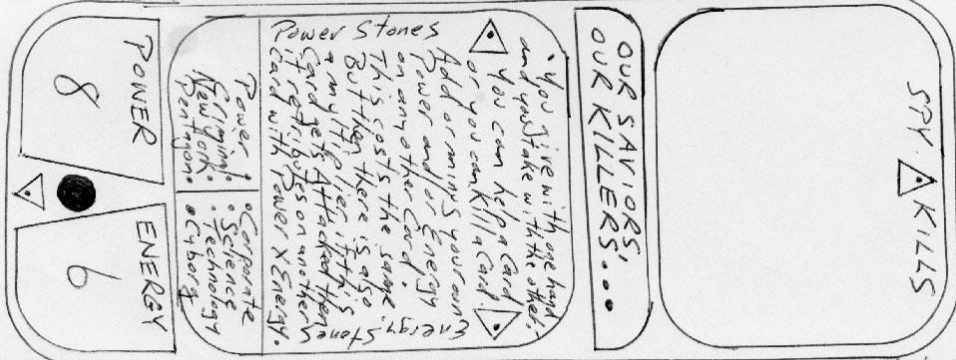 SPY KILLS
OUR SAVIORS,
OUR KILLERS...
You give with one hand
and you take with the other!
You can help a card
or you can kill a card.
Add or minus your own
Power and/or Energy
on any other card!
This costs the same
But then there is also
a multiplier, if this
Card gets Attacked then
it retributes on another
card with Power X Energy.
Power Stones
Energy Stones
Power
New York
Pentagon
• Corporate
• Science
• Technology
• Cyborg
POWER
8
ENERGY
6